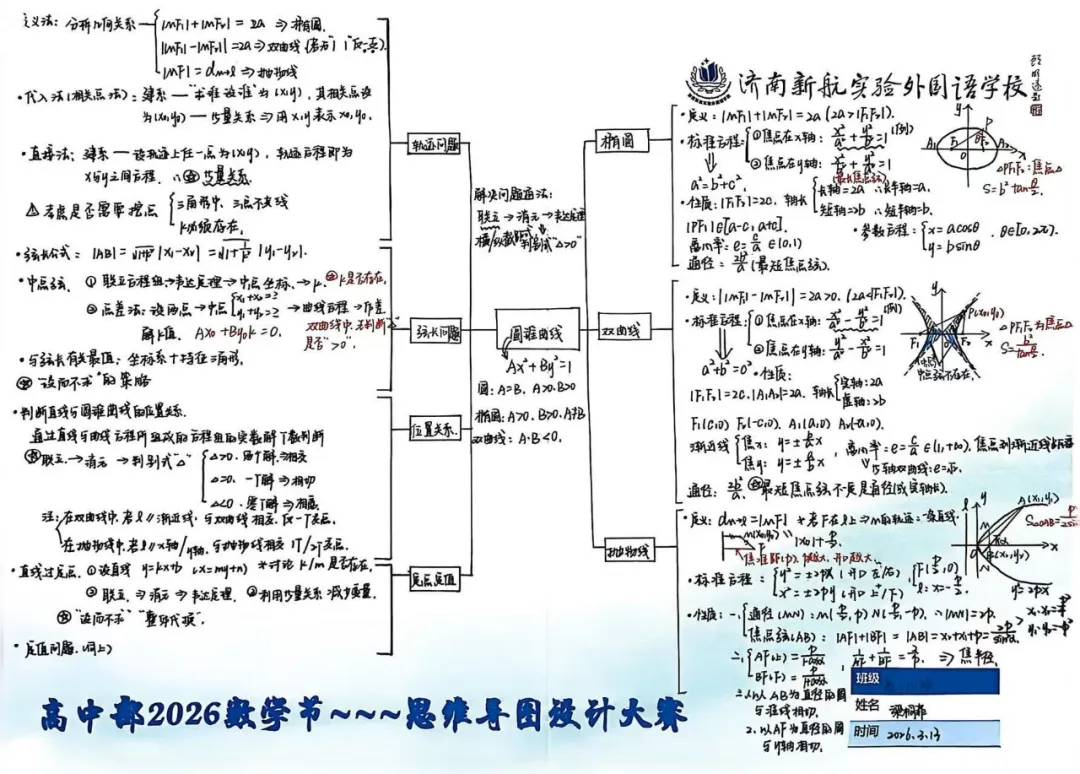 定义法：分析几何关系 |MF₁|+|MF₂| = 2a ⇒ 椭圆.
|MF₁|-|MF₂| =2a⇒ 双曲线
|MF| = dₘ→ℓ ⇒ 抛物线
·代入法(相关点法)：建系—"求谁设谁"为(x,y)，其相关点设
为(x₀,y₀)— 等量关系 ⇒ 用x,y表示x₀,y₀.
·直接法：建系—设轨迹上任一点为(x,y)，轨迹方程即为
x与y之间方程. 等量关系
考虑是否需要挖点 三角形中，三点不共线
k必须存在.
轨迹问题
·弦长公式：|AB| = √1+k² |x₁-x₂| = √1+1/k² |y₁-y₂|.
·中点弦. ① 联立方程组→韦达定理→中点坐标→k. k是否存在.
② 点差法：设两点→中点 x₁+x₂=? y₁+y₂=? →曲线方程→作差
解k值. Ax₀+By₀k=0. 双曲线中，要判断
是否">0".
·与弦长有关最值：
"设而不求"的策略
弦长问题
·判断直线与圆锥曲线的位置关系.
通过直线与曲线方程所组成的方程组的实数解个数判断
联立→消元→判别式"Δ"
Δ>0. 两个解⇒相交
Δ=0. 一个解⇒相切
Δ<0. 零个解⇒相离
注：在双曲线中，若l∥渐近线，与双曲线相交，仅一个交点.
在抛物线中，若l∥x轴/y轴，与抛物线相交 1个/2个交点.
位置关系.
·直线过定点. ①设直线 y=kx+b (x=my+n) *讨论k/m是否存在.
② 联立⇒消元⇒韦达定理. ③利用等量关系 减少变量.
"设而不求" "整体代换".
·定值问题.(同上)
定点定值
解决问题通法：
联立→消元→韦达定理
判别式"Δ>0"
圆锥曲线
Ax²+By²=1
圆：A=B. A>0.B>0
椭圆：A>0. B>0. A≠B
双曲线：A·B<0.
济南新航实验外国语学校
椭圆
·定义：|MF₁|+|MF₂| = 2a (2a>|F₁F₂|).
·标准方程：①焦点在x轴：x²/a²+y²/b²=1 (例)
②焦点在y轴：y²/a²+x²/b²=1
a²=b²+c²,
·性质：|F₁F₂|=2c. 轴长 长轴=2a ∴长半轴=a.
短轴=2b ∴短半轴=b.
|PF₁|∈[a-c, a+c].
离心率：e=c/a∈(0,1)
通径：2b²/a (最短焦点弦).
·参数方程：x=acosθ y=bsinθ . θ∈[0,2π).
△PF₁F₂:焦点△
S=b²tanθ/2
双曲线
·定义：||MF₁|-|MF₂||=2a>0. (2a<|F₁F₂|).
·标准方程：①焦点在x轴：x²/a²-y²/b²=1 (例)
②焦点在y轴：y²/a²-x²/b²=1
a²+b²=c² ·性质：
|F₁F₂|=2c. |A₁A₂|=2a. 轴长 实轴：2a
虚轴：2b
F₁(c,0) F₂(-c,0). A₁(a,0) A₂(-a,0).
渐近线 焦x：y=±b/a x
焦y：y=±a/b x
离心率：e=c/a∈(1,+∞).
等轴双曲线：e=√2.
通径：2b²/a. 最短焦点弦不一定是通径(或实轴长).
P(x₀,y₀)
△PF₁F₂为焦点△
S=b²/tanθ/2
中点弦不存在.
抛物线
·定义：dₘ→ℓ=|MF| *若F在l上⇒M的轨迹：一条直线.
M(x₀,y₀) |x₀|+p/2.
焦准距(p)，p越大，开口越大.
·标准方程：y²=±2px (开口左/右). F(p/2,0)
x²=±2py (开口上/下) l:x=-p/2
·性质：一. 通径(MN)：M(p/2,p) N(p/2,-p). ∴|MN|=2p.
焦点弦(AB)：|AF|+|BF| = |AB|=x₁+x₂+p=2p/sin²α
二. AF(上)=p/1-cosα
BF(下)=p/1+cosα
1/AF+1/BF=2/p ⇒ 焦半径.
三.1.以AB为直径的圆
与准线相切.
2.以AF为直径的圆
与y轴相切.
A(x₁,y₁)
B(x₂,y₂)
y²=2px
班级
姓名 梁桐菲
时间 2026.3.13
高中部2026数学节~~~思维导图设计大赛